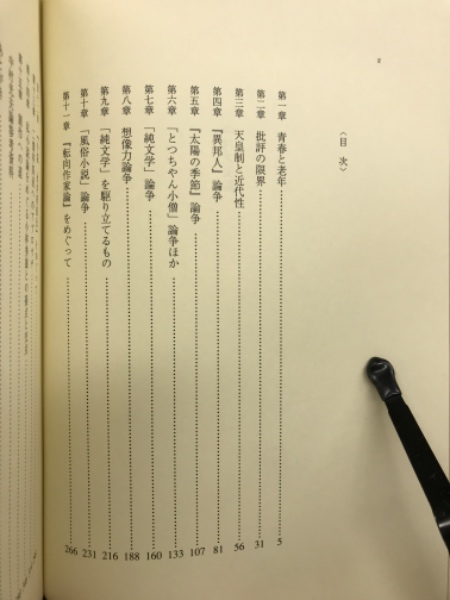 2
〈目次〉
第一章 青春と老年 5
第二章 批評の限界 31
第三章 天皇制と近代性 56
第四章 『異邦人』論争 81
第五章 『太陽の季節』論争 107
第六章 「とつちやん小僧」論争ほか 133
第七章 「純文学」論争 160
第八章 想像力論争 188
第九章 「純文学」を駆り立てるもの 216
第十章 「風俗小説」論争 231
第十一章 『転向作家論』をめぐって 266